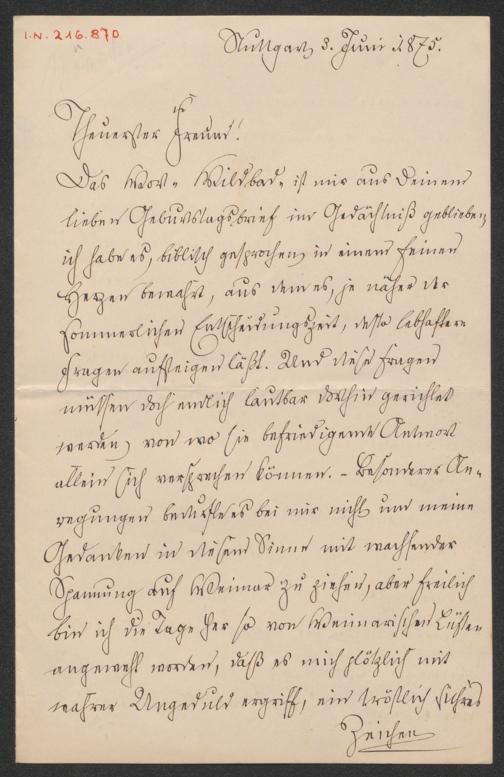 I.N. 216.870
Stuttgart 3. Juni 1875.
Theuerster Freund!
Das Wort „Wildbad" ist mir aus Deinem
lieben Geburtstagsbrief im Gedächtniß geblieben,
ich habe es, biblisch gesprochen, in einem feinen
Herzen bewahrt, aus dem es, je näher der
sommerlichen Entscheidungszeit, desto lebhaftere
Fragen aufsteigen läßt. Und diese Fragen
müssen doch endlich lautbar dorthin gerichtet
werden, von wo sie befriedigende Antwort
allein sich versprechen können. – Besonderer An-
regungen bedurfte es bei mir nicht um meine
Gedanken in diesem Sinne mit wachsender
Spannung auf Weimar zu ziehen, aber freilich
bin ich die Tage her so von Weimarischen Lüften
angeweht worden, daß es mich plötzlich mit
wahrer Ungeduld ergriff, ein tröstlich sichres
Zeichen